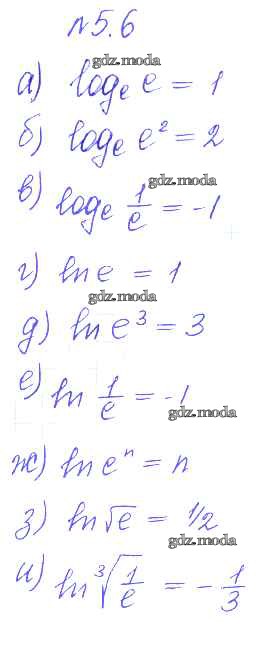 №5.6
gdz.moda
а) logₑ e = 1
б) logₑ e² = 2
gdz.moda
в) logₑ 1/e = -1
г) ln e = 1
gdz.moda
д) ln e³ = 3
е) ln 1/e = -1
gdz.moda
ж) ln eⁿ = n
з) ln √e = 1/2
gdz.moda
и) ln ∛(1/e) = - 1/3